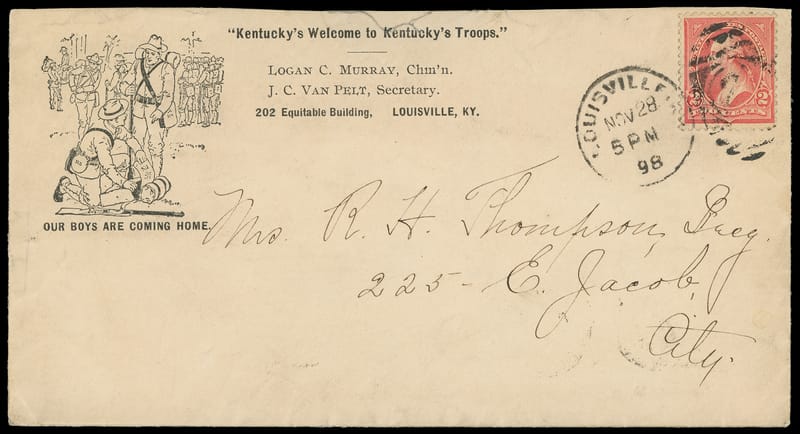 "Kentucky's Welcome to Kentucky's Troops."
LOGAN C. MURRAY, Chm'n.
J. C. VAN PELT, Secretary.
202 Equitable Building, LOUISVILLE, KY.
OUR BOYS ARE COMING HOME.
LOUISVILLE
NOV 28
5 PM
98
2 2
Mrs. R. H. Thompson, Secy.
225 - E. Jacob,
City.